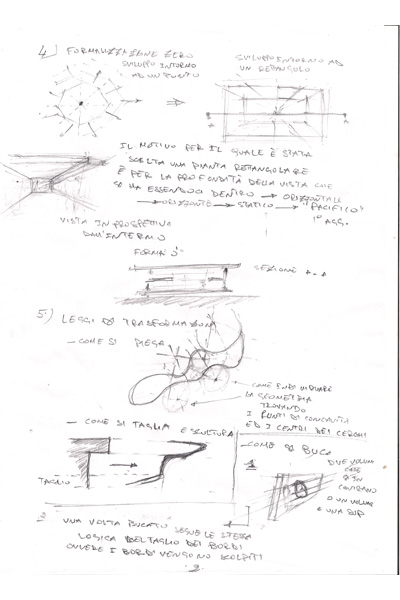 4.) FORMALIZZAZIONE ZERO
SVILUPPO INTORNO
AD UN PUNTO
SVILUPPO INTORNO AD
UN RETANGOLO
IL MOTIVO PER IL QUALE È STATA
SCELTA UNA PIANTA RETANGOLARE
È PER LA PROFONDITÀ DELLA VISTA CHE
SI HA ESSENDOCI DENTRO → ORIZZONTALE
→ ORIZZONTE → STATICO → "PACIFICO"
1° AGG.
VISTA IN PROSPETTIVA
DALL'INTERNO
FORMA
SEZIONE
5.) LEGGI DI TRASFORMAZIONE
- COME SI PIEGA
COME INDIVIDUARE
LA GEOMETRIA
TROVANDO
I PUNTI DI
ED I CENTRI DEI CERCHI
- COME SI TAGLIA E SCULTURA
- COME SI BUCA
1
DUE VOLUMI
TAGLIO
O UN VOLUME
E UNA SUP.
UNA VOLTA BUCATO SEGUE LE STESSA
LOGICA DEL TAGLIO DEI BORDI
OVVERE I BORDI VENGONO SCOLPITI